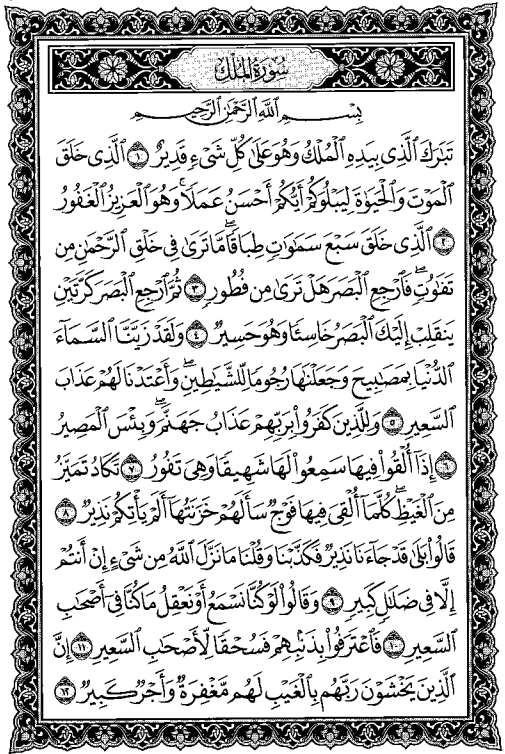 سُورَةُ المُلْكِ
بِسْمِ اللَّهِ الرَّحْمَٰنِ الرَّحِيمِ
تَبَارَكَ الَّذِي بِيَدِهِ الْمُلْكُ وَهُوَ عَلَىٰ كُلِّ شَيْءٍ قَدِيرٌ ١ الَّذِي خَلَقَ
الْمَوْتَ وَالْحَيَاةَ لِيَبْلُوَكُمْ أَيُّكُمْ أَحْسَنُ عَمَلًا ۚ وَهُوَ الْعَزِيزُ الْغَفُورُ
٢ الَّذِي خَلَقَ سَبْعَ سَمَاوَاتٍ طِبَاقًا ۖ مَّا تَرَىٰ فِي خَلْقِ الرَّحْمَٰنِ مِن
تَفَاوُتٍ ۖ فَارْجِعِ الْبَصَرَ هَلْ تَرَىٰ مِن فُطُورٍ ٣ ثُمَّ ارْجِعِ الْبَصَرَ كَرَّتَيْنِ
يَنقَلِبْ إِلَيْكَ الْبَصَرُ خَاسِئًا وَهُوَ حَسِيرٌ ٤ وَلَقَدْ زَيَّنَّا السَّمَاءَ
الدُّنْيَا بِمَصَابِيحَ وَجَعَلْنَاهَا رُجُومًا لِّلشَّيَاطِينِ ۖ وَأَعْتَدْنَا لَهُمْ عَذَابَ
السَّعِيرِ ٥ وَلِلَّذِينَ كَفَرُوا بِرَبِّهِمْ عَذَابُ جَهَنَّمَ ۖ وَبِئْسَ الْمَصِيرُ
٦ إِذَا أُلْقُوا فِيهَا سَمِعُوا لَهَا شَهِيقًا وَهِيَ تَفُورُ ٧ تَكَادُ تَمَيَّزُ
مِنَ الْغَيْظِ ۖ كُلَّمَا أُلْقِيَ فِيهَا فَوْجٌ سَأَلَهُمْ خَزَنَتُهَا أَلَمْ يَأْتِكُمْ نَذِيرٌ ٨
قَالُوا بَلَىٰ قَدْ جَاءَنَا نَذِيرٌ فَكَذَّبْنَا وَقُلْنَا مَا نَزَّلَ اللَّهُ مِن شَيْءٍ إِنْ أَنتُمْ
إِلَّا فِي ضَلَالٍ كَبِيرٍ ٩ وَقَالُوا لَوْ كُنَّا نَسْمَعُ أَوْ نَعْقِلُ مَا كُنَّا فِي أَصْحَابِ
السَّعِيرِ ١٠ فَاعْتَرَفُوا بِذَنبِهِمْ فَسُحْقًا لِّأَصْحَابِ السَّعِيرِ ١١ إِنَّ
الَّذِينَ يَخْشَوْنَ رَبَّهُم بِالْغَيْبِ لَهُم مَّغْفِرَةٌ وَأَجْرٌ كَبِيرٌ ١٢